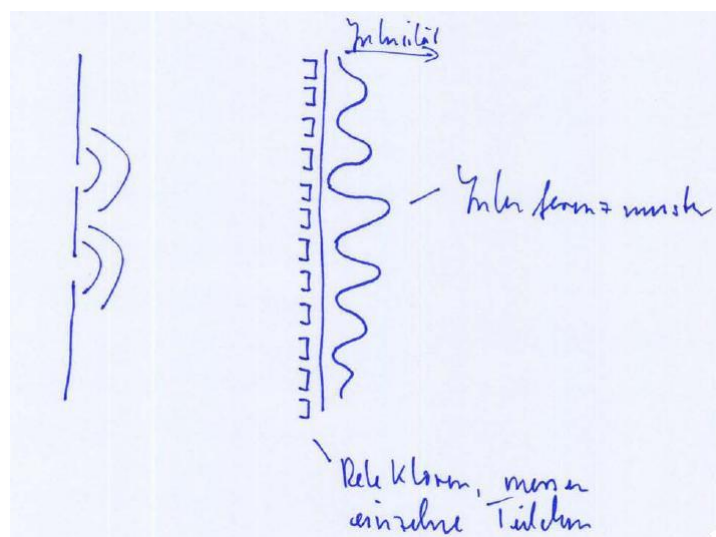 Intensität
Interferenzmuster
Detektoren, messen
einzelne Teilchen